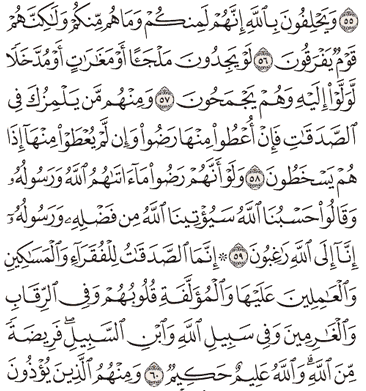 ٥٥ وَيَحْلِفُونَ بِٱللَّهِ إِنَّهُمْ لَمِنكُمْ وَمَا هُم مِّنكُمْ وَلَٰكِنَّهُمْ
قَوْمٌ يَفْرَقُونَ ٥٦ لَوْ يَجِدُونَ مَلْجَـًٔا أَوْ مَغَٰرَٰتٍ أَوْ مُدَّخَلًا
لَّوَلَّوْا۟ إِلَيْهِ وَهُمْ يَجْمَحُونَ ٥٧ وَمِنْهُم مَّن يَلْمِزُكَ فِى
ٱلصَّدَقَٰتِ فَإِنْ أُعْطُوا۟ مِنْهَا رَضُوا۟ وَإِن لَّمْ يُعْطَوْا۟ مِنْهَآ إِذَا
هُمْ يَسْخَطُونَ ٥٨ وَلَوْ أَنَّهُمْ رَضُوا۟ مَآ ءَاتَىٰهُمُ ٱللَّهُ وَرَسُولُهُۥ
وَقَالُوا۟ حَسْبُنَا ٱللَّهُ سَيُؤْتِينَا ٱللَّهُ مِن فَضْلِهِۦ وَرَسُولُهُۥٓ
إِنَّآ إِلَى ٱللَّهِ رَٰغِبُونَ ٥٩ ۞ إِنَّمَا ٱلصَّدَقَٰتُ لِلْفُقَرَآءِ وَٱلْمَسَٰكِينِ
وَٱلْعَٰمِلِينَ عَلَيْهَا وَٱلْمُؤَلَّفَةِ قُلُوبُهُمْ وَفِى ٱلرِّقَابِ
وَٱلْغَٰرِمِينَ وَفِى سَبِيلِ ٱللَّهِ وَٱبْنِ ٱلسَّبِيلِ ۖ فَرِيضَةً
مِّنَ ٱللَّهِ ۗ وَٱللَّهُ عَلِيمٌ حَكِيمٌ ٦٠ وَمِنْهُمُ ٱلَّذِينَ يُؤْذُونَ